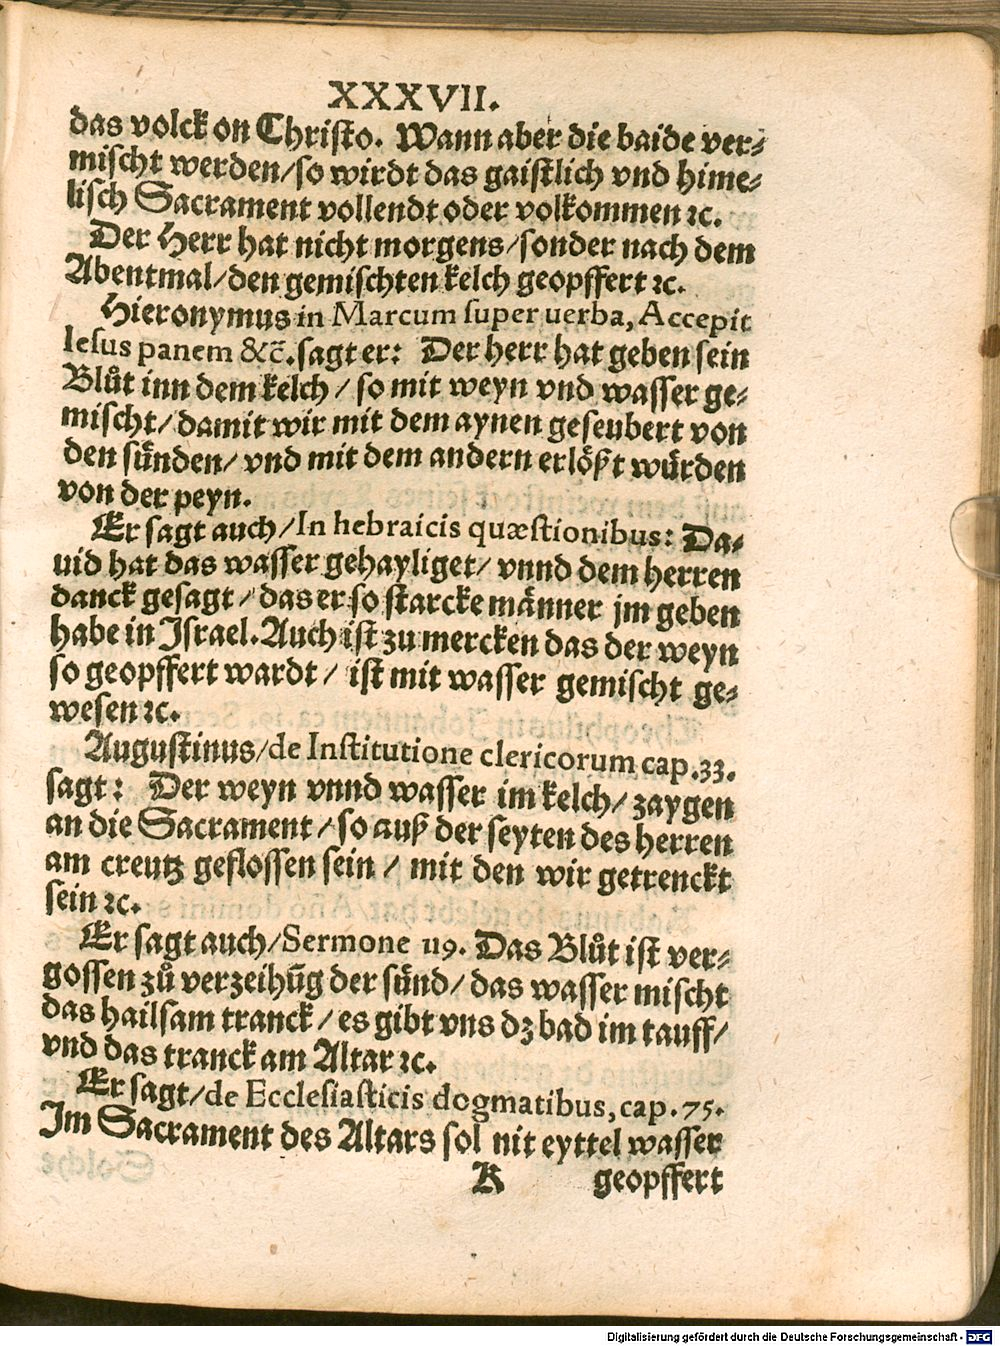 XXXVII.
das volck on Christo. Wann aber die baide ver⸗
mischt werden/so wirdt das gaistlich vnd hime⸗
lisch Sacrament vollendt oder volkommen ꝛc.
Der Herr hat nicht morgens/sonder nach dem
Abentmal/den gemischten kelch geopffert ꝛc.
Hieronymus in Marcum super uerba, Accepit
Iesus panem &c̄. sagt er: Der herr hat geben sein
Blůt inn dem kelch / so mit weyn vnd wasser ge⸗
mischt/ damit wir mit dem aynen geseubert von
den sünden/ vnd mit dem andern erlößt würden
von der peyn.
Er sagt auch/In hebraicis quæstionibus: Da⸗
uid hat das wasser gehayliget/ vnnd dem herren
danck gesagt / das er so starcke männer jm geben
habe in Israel. Auch ist zu mercken das der weyn
so geopffert wardt / ist mit wasser gemischt ge⸗
wesen ꝛc.
Augustinus/de Institutione clericorum cap.33.
sagt: Der weyn vnnd wasser im kelch/ zaygen
an die Sacrament / so auß der seyten des herren
am creutz geflossen sein / mit den wir getrenckt
sein ꝛc.
Er sagt auch/Sermone 119. Das Blůt ist ver⸗
gossen zů verzeihūg der sünd/ das wasser mischt
das hailsam tranck / es gibt vns dz bad im tauff/
vnd das tranck am Altar ꝛc.
Er sagt/de Ecclesiasticis dogmatibus, cap.75.
Im Sacrament des Altars sol nit eyttel wasser
K geopffert
Digitalisierung gefördert durch die Deutsche Forschungsgemeinschaft - DFG